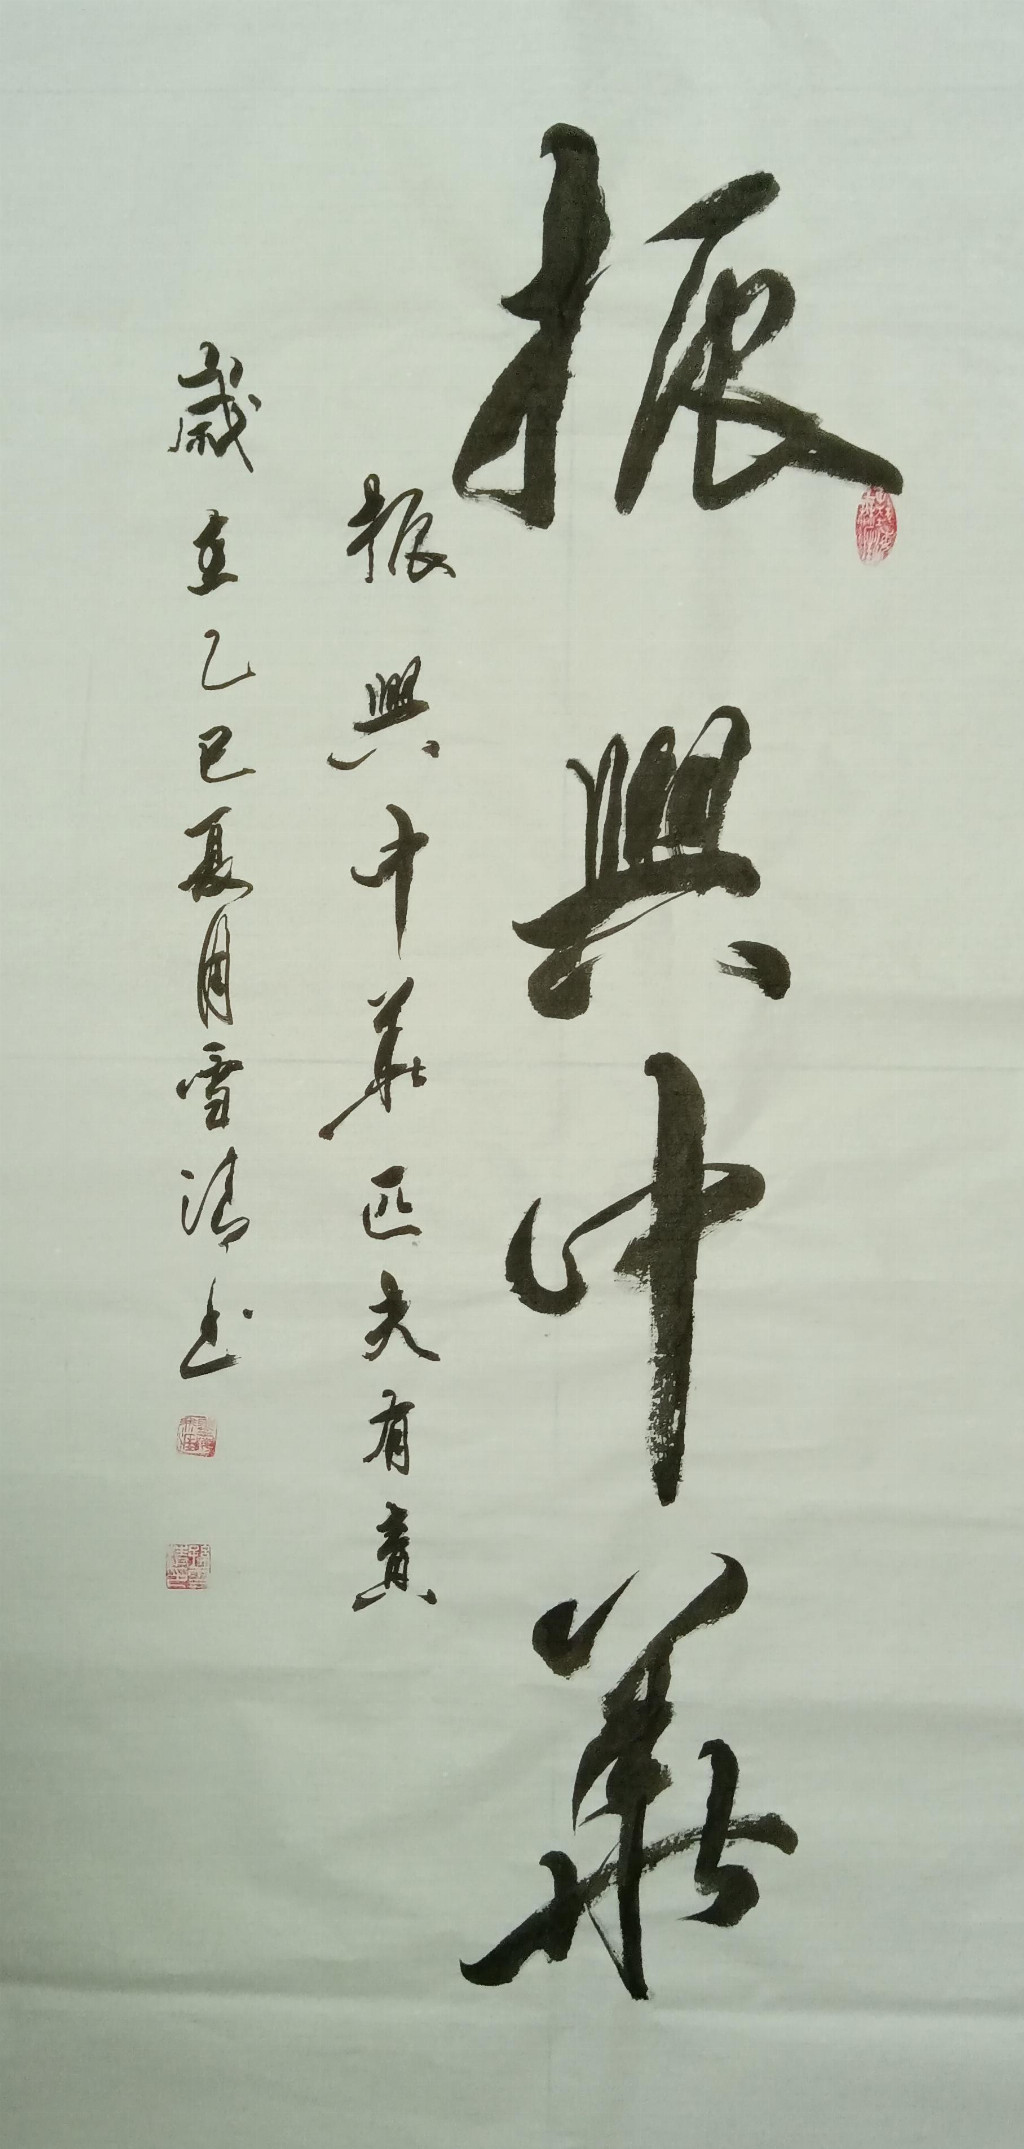 振興中華
振興中華匹夫有責
歲在乙巳夏月雪清书